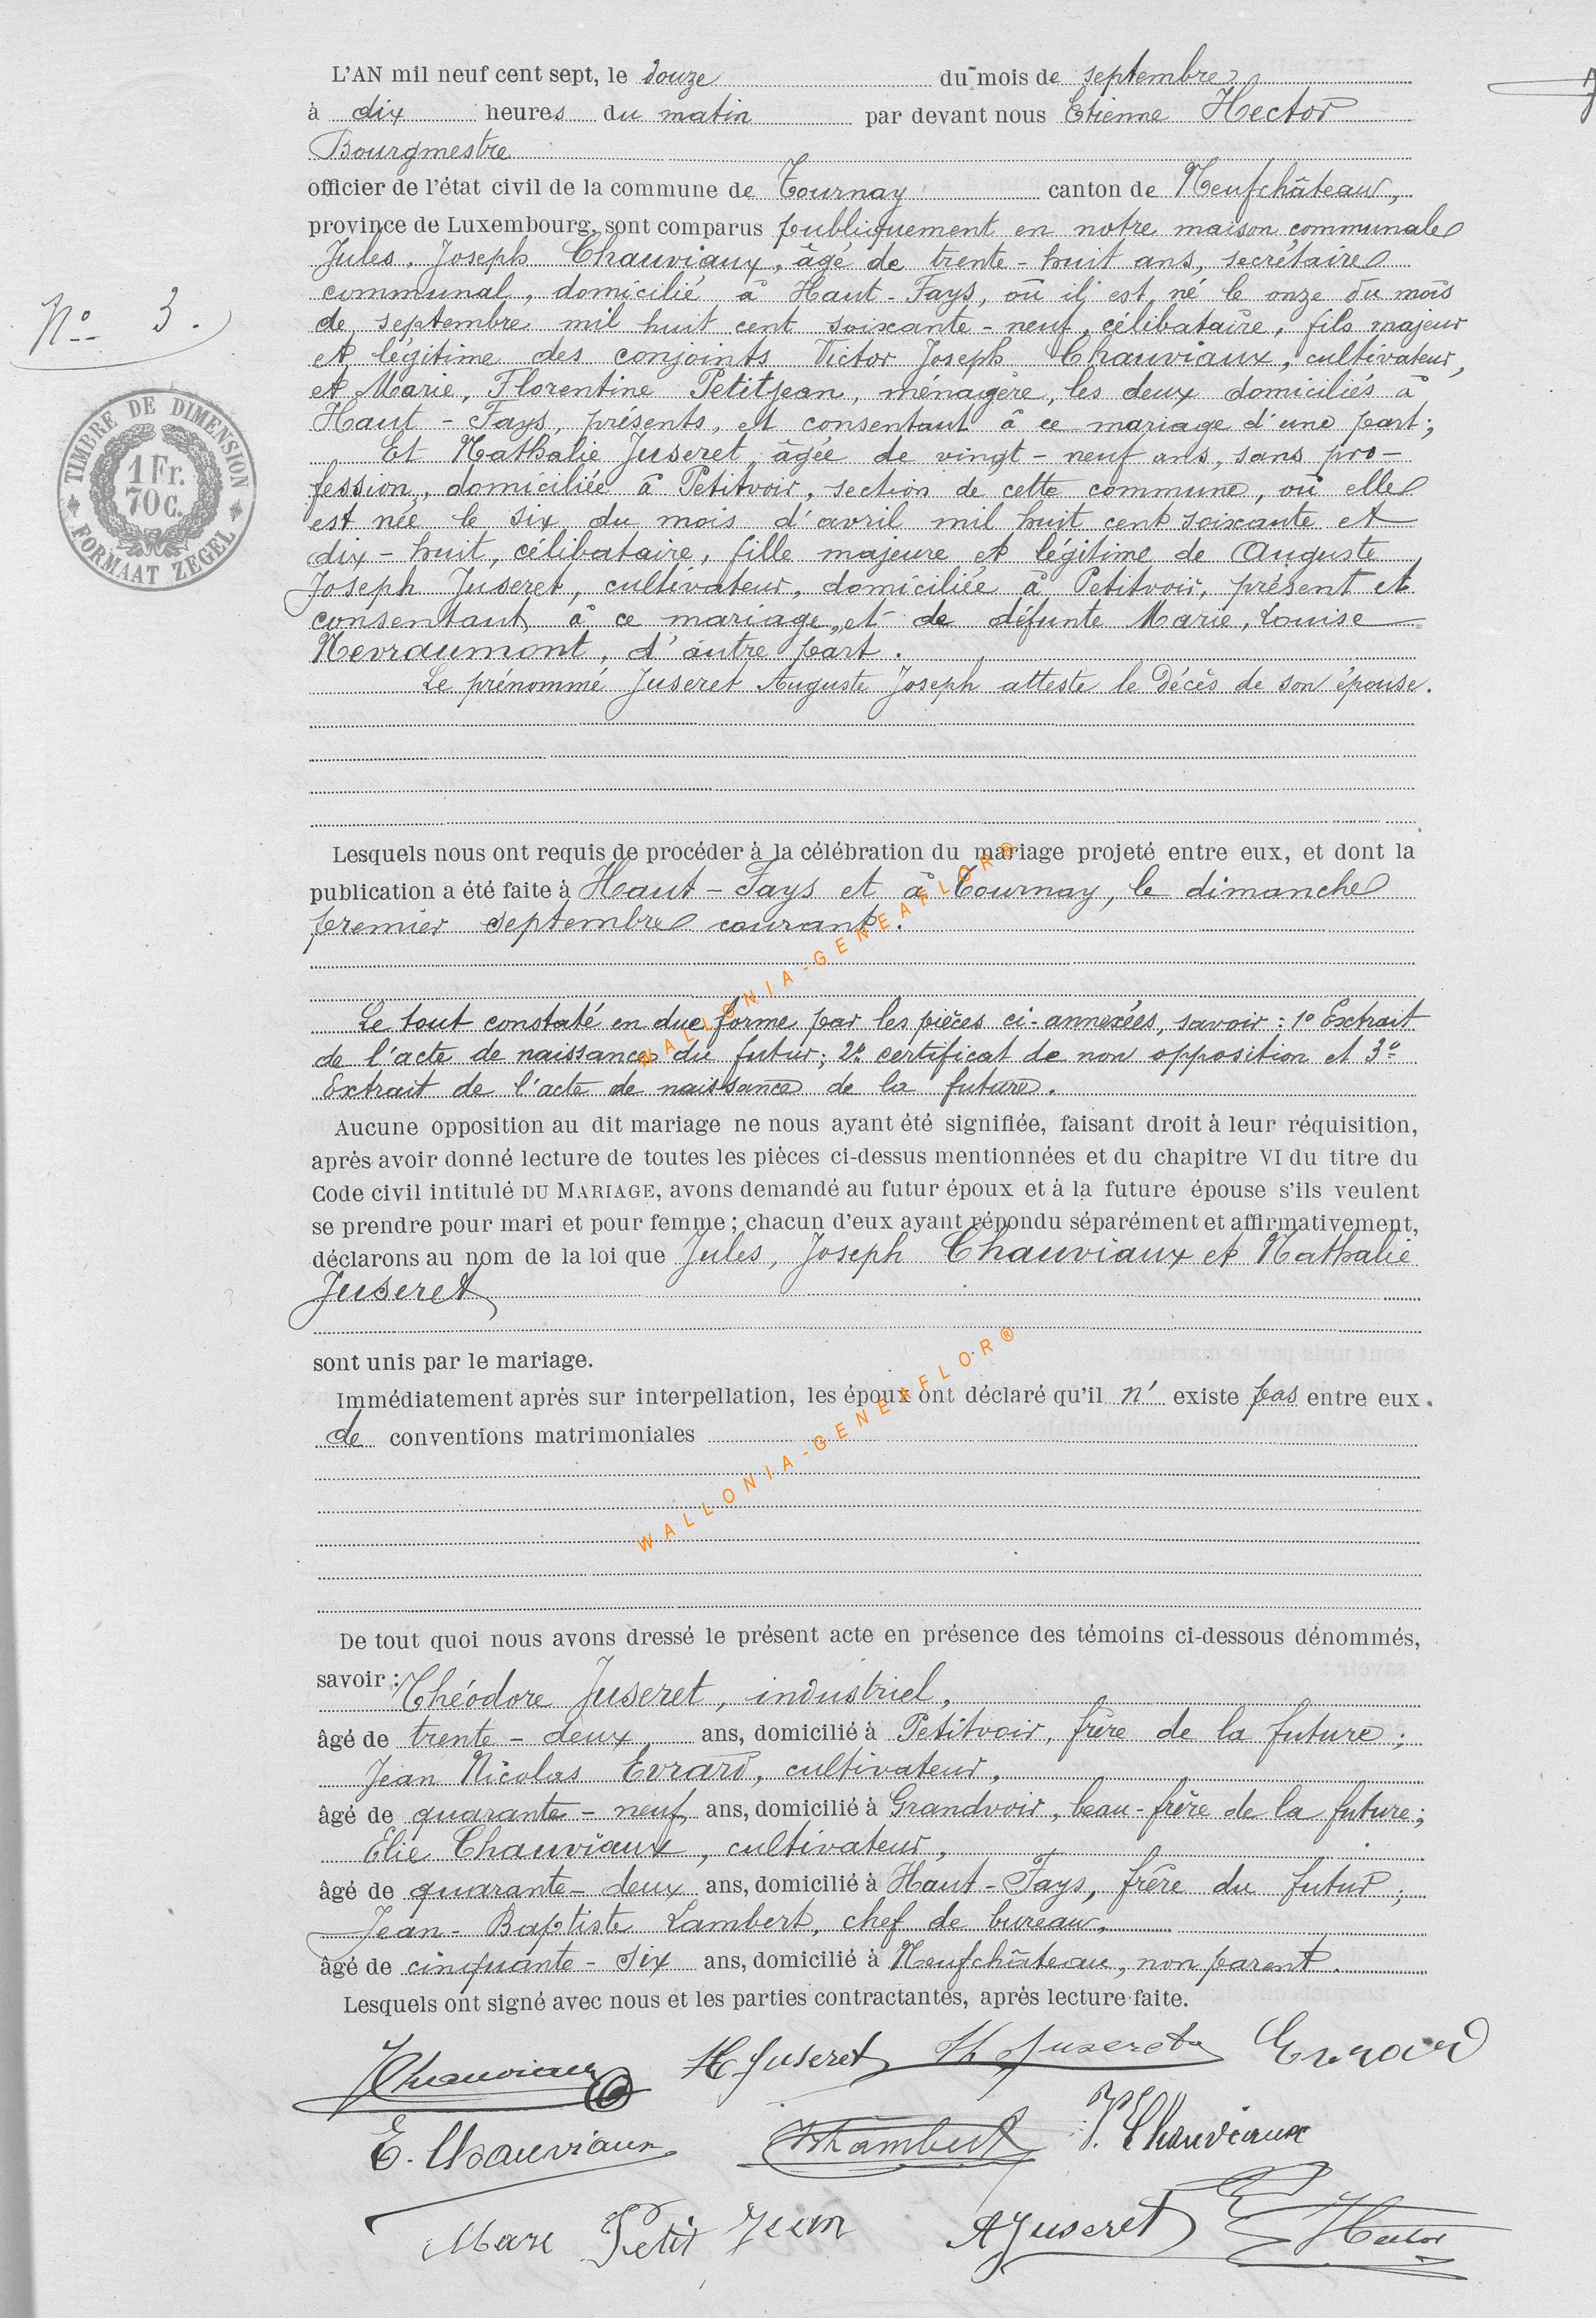 L'AN mil neuf cent sept, le douze du mois de septembre
à dix heures du matin par devant nous Etienne Hector
Bourgmestre
officier de l'état civil de la commune de Tournay canton de Neufchâteau,
province de Luxembourg, sont comparus publiquement en notre maison communale
Jules, Joseph Chauviaux, âgé de trente-huit ans, secrétaire
communal, domicilié à Haut-Fays, où il est né le onze du mois
de septembre mil huit cent soixante-neuf, célibataire, fils majeur
et légitime des conjoints Victor Joseph Chauviaux, cultivateur,
et Marie, Florentine Petitjean, ménagère, les deux domiciliés à
Haut-Fays, présents, et consentant à ce mariage d'une part;
Et Nathalie Juseret, âgée de vingt-neuf ans, sans pro-
fession, domiciliée à Petitvoir, section de cette commune, où elle
est née le six du mois d'avril mil huit cent soixante et
dix-huit, célibataire, fille majeure et légitime de Auguste
Joseph Juseret, cultivateur, domiciliée à Petitvoir, présent et
consentant à ce mariage, et de défunte Marie, Louise
Nevraumont, d'autre part.
Le prénommé Juseret Auguste Joseph atteste le décès de son épouse.
N° 3.
TIMBRE DE DIMENSION
1 Fr.
70 C.
FORMAAT ZEGEL
Lesquels nous ont requis de procéder à la célébration du mariage projeté entre eux, et dont la
publication a été faite à Haut-Fays et à Tournay, le dimanche
premier septembre courant.
Le tout constaté en due forme par les pièces ci-annexées, savoir: 1° Extrait
de l'acte de naissance du futur; 2° certificat de non opposition et 3°
Extrait de l'acte de naissance de la future.
WALLONIA-GENEAFLOR®
Aucune opposition au dit mariage ne nous ayant été signifiée, faisant droit à leur réquisition,
après avoir donné lecture de toutes les pièces ci-dessus mentionnées et du chapitre VI du titre du
Code civil intitulé DU MARIAGE, avons demandé au futur époux et à la future épouse s'ils veulent
se prendre pour mari et pour femme; chacun d'eux ayant répondu séparément et affirmativement,
déclarons au nom de la loi que Jules, Joseph Chauviaux et Nathalie
Juseret
sont unis par le mariage.
Immédiatement après sur interpellation, les époux ont déclaré qu'il n' existe pas entre eux.
de conventions matrimoniales
WALLONIA-GENEAFLOR®
De tout quoi nous avons dressé le présent acte en présence des témoins ci-dessous dénommés,
savoir: Théodore Juseret, industriel,
âgé de trente-deux ans, domicilié à Petitvoir, frère de la future;
Jean Nicolas Evrard, cultivateur,
âgé de quarante-neuf ans, domicilié à Grandvoir, beau-frère de la future;
Elie Chauviaux, cultivateur,
âgé de quarante-deux ans, domicilié à Haut-Fays, frère du futur;
Jean-Baptiste Lambert, chef de bureau,
âgé de cinquante-six ans, domicilié à Neufchâteau, non parent.
Lesquels ont signé avec nous et les parties contractantes, après lecture faite.
JChauviaux N Juseret Th Juseret Evrard
E. Chauviaux Lambert V. Chauviaux
Marie Petit Jean A Juseret E Hector